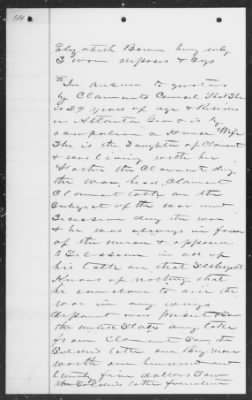 Elizabeth Brown being duly
Sworn deposes & says
In answer to questions
by Claimants Counsel That She
is 29 years of age & Resides
in Atlanta Geo & is by
occupation a House Wife
She is the Daughter of Claimant
& was living with her
Father the Claimant during
the war hear Claimant
talk on the
Subject of the war and
Secession during the war
& he was always in favor
of the union & opposed
to Secession in all of
his talk and that
Knows of nothing that
he ever done to aid the
war in any way
deponent was present & saw
the united States army take
from Claimant Saw the
Soldiers take one Big mule
worth one hundred and
twenty five dollars Saw
the Soldiers take